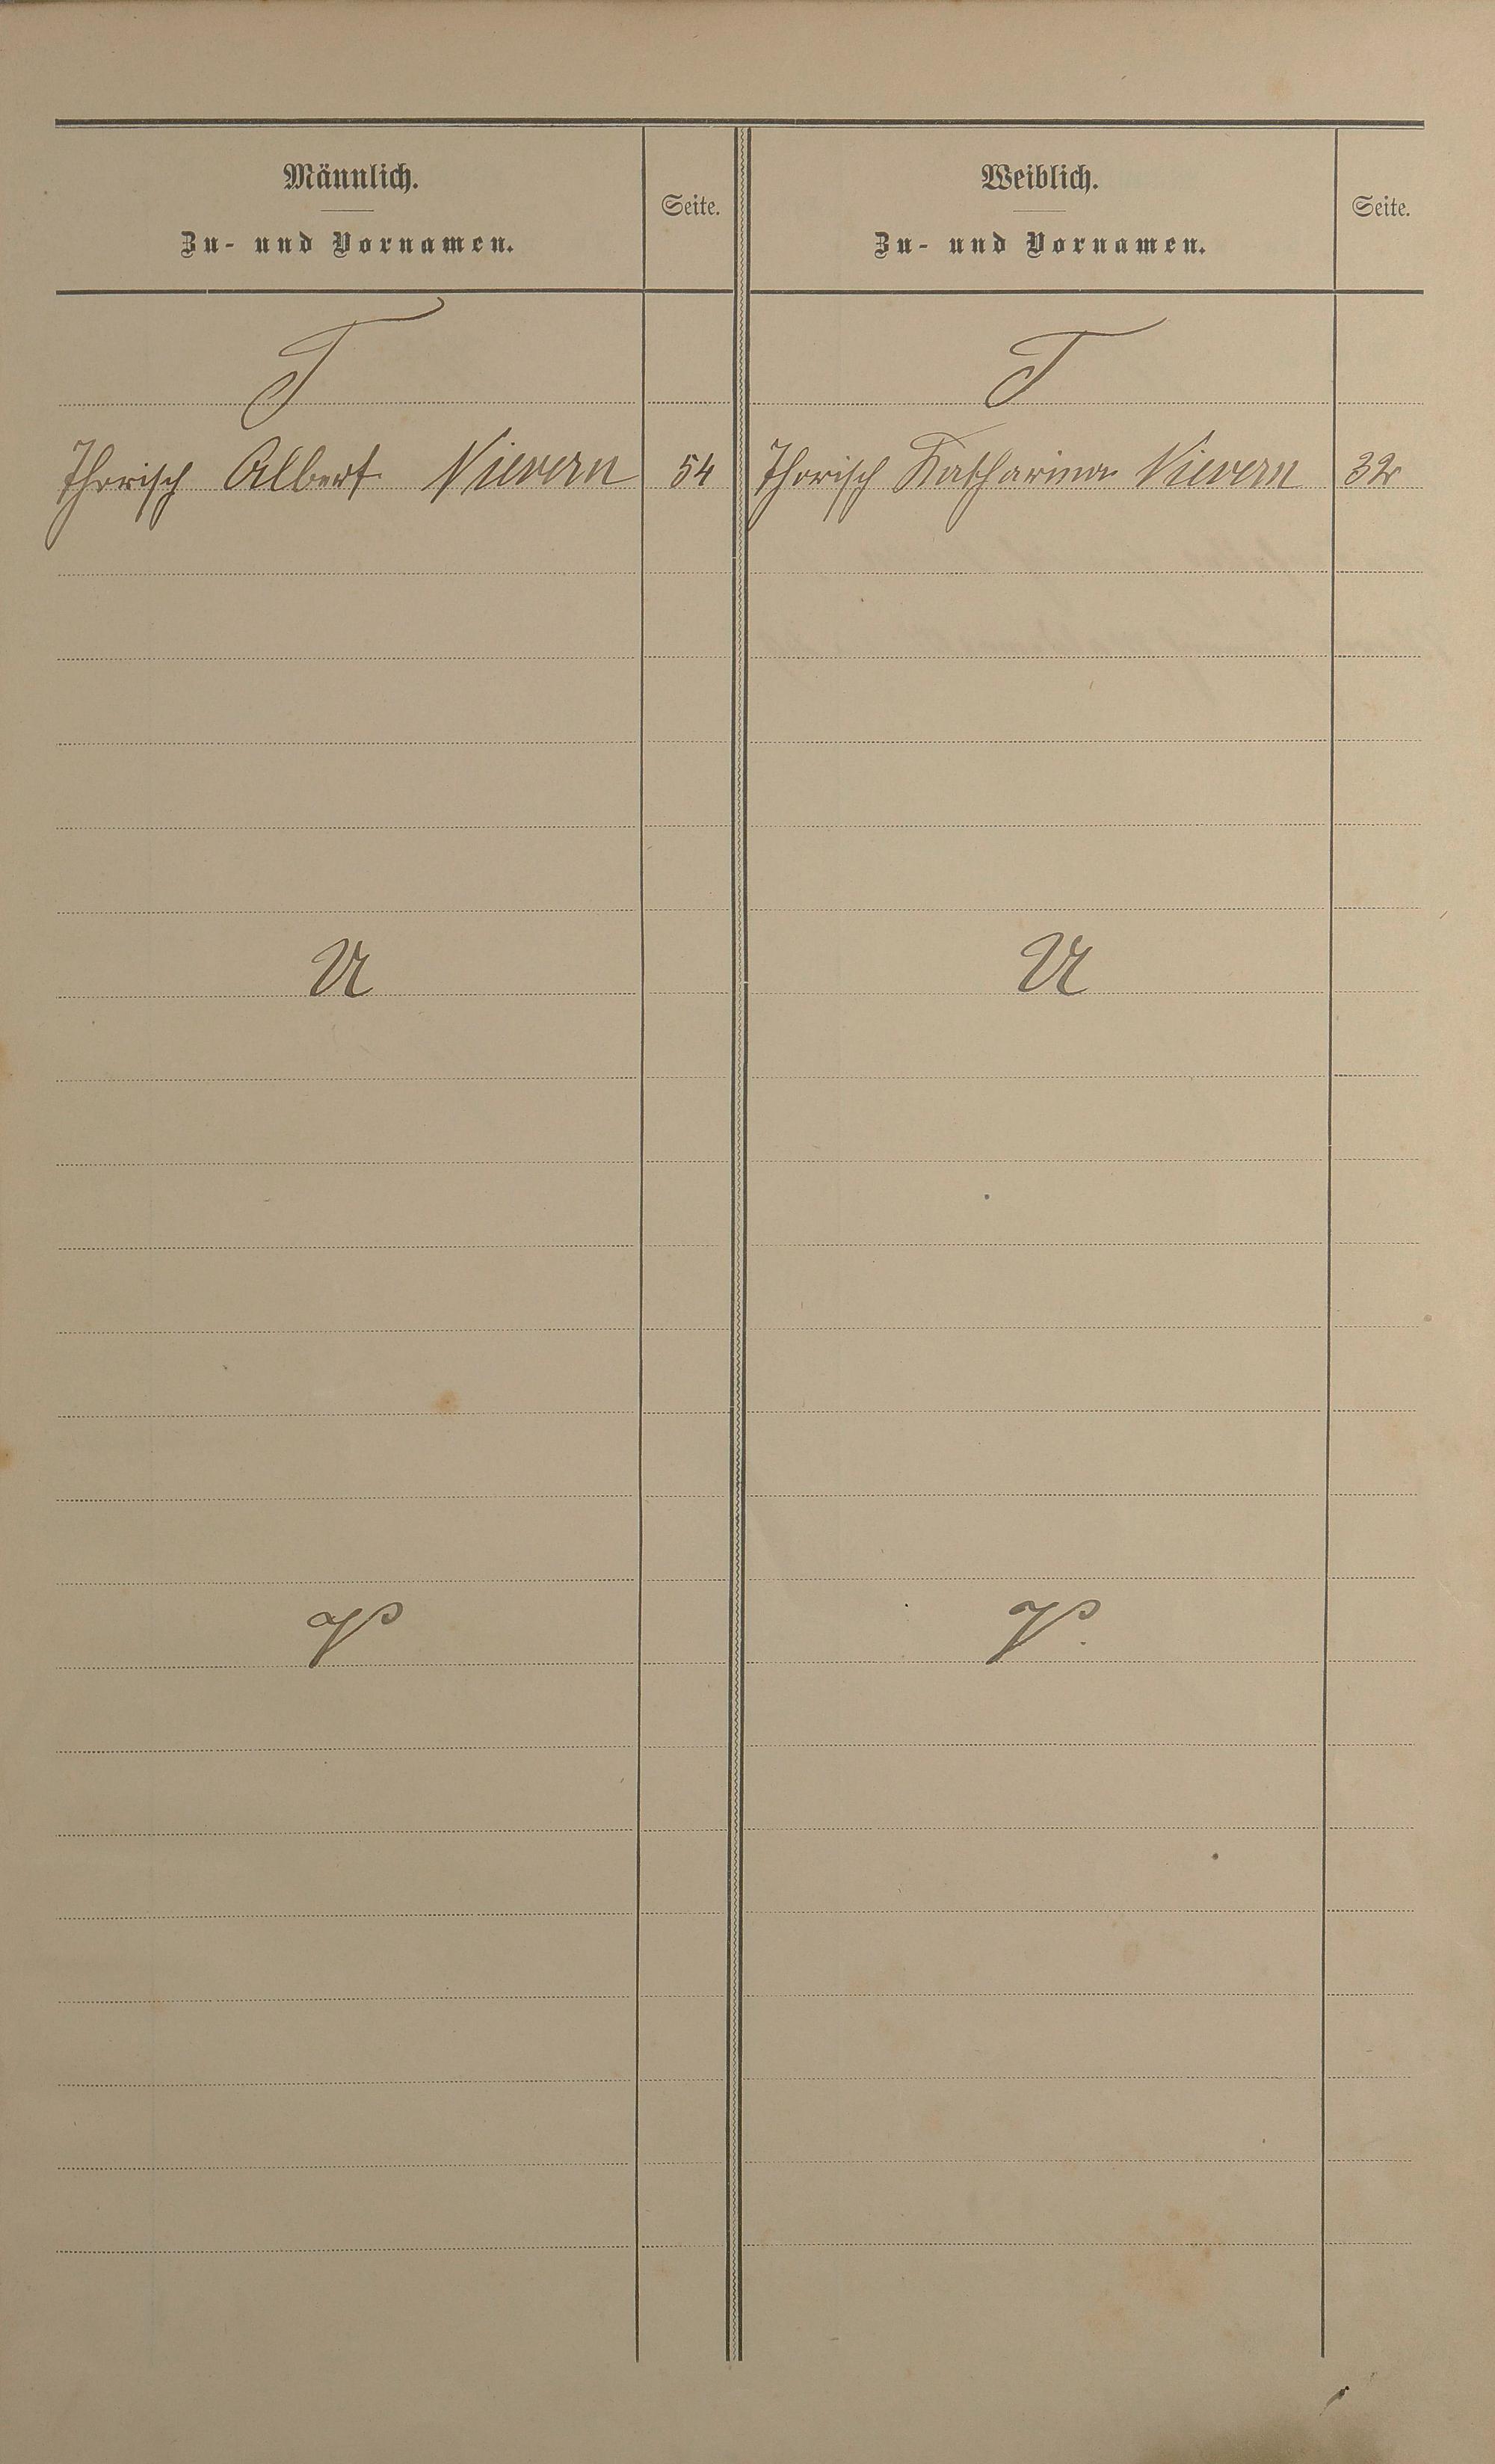 Männlich.
Zu- und Vornamen.
Seite.
Weiblich.
Zu- und Vornamen.
Seite.
T
T
Thorisch Albert Nievern 54
Thorisch Katharina Nievern 32
U
U
V
V.